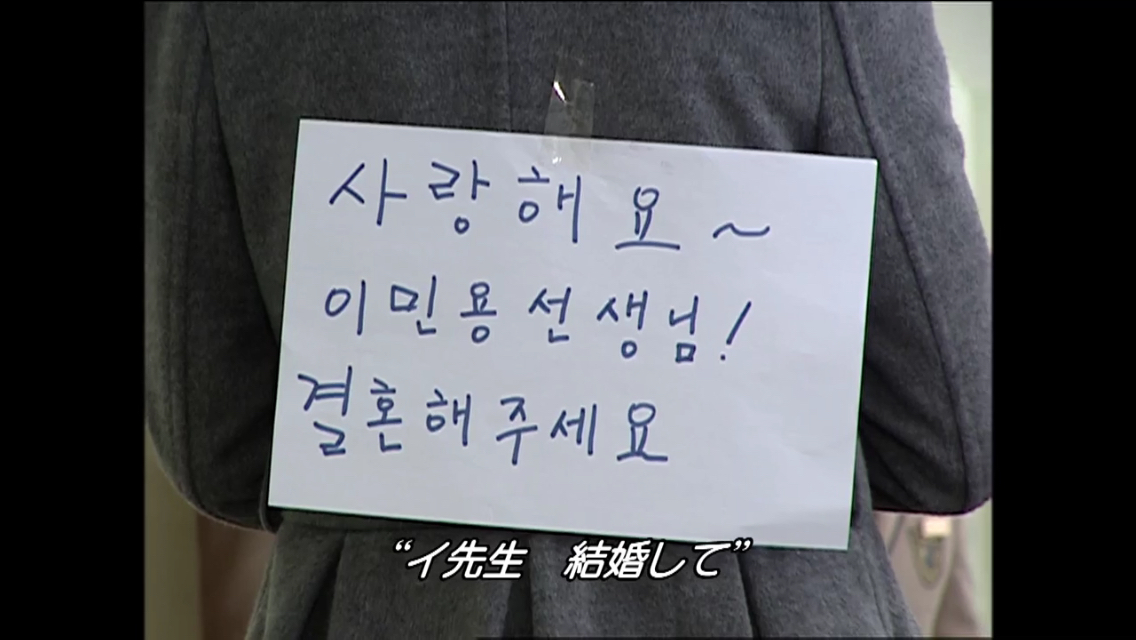 사랑해요~
이민용선생님!
결혼해주세요
“イ先生　結婚して”